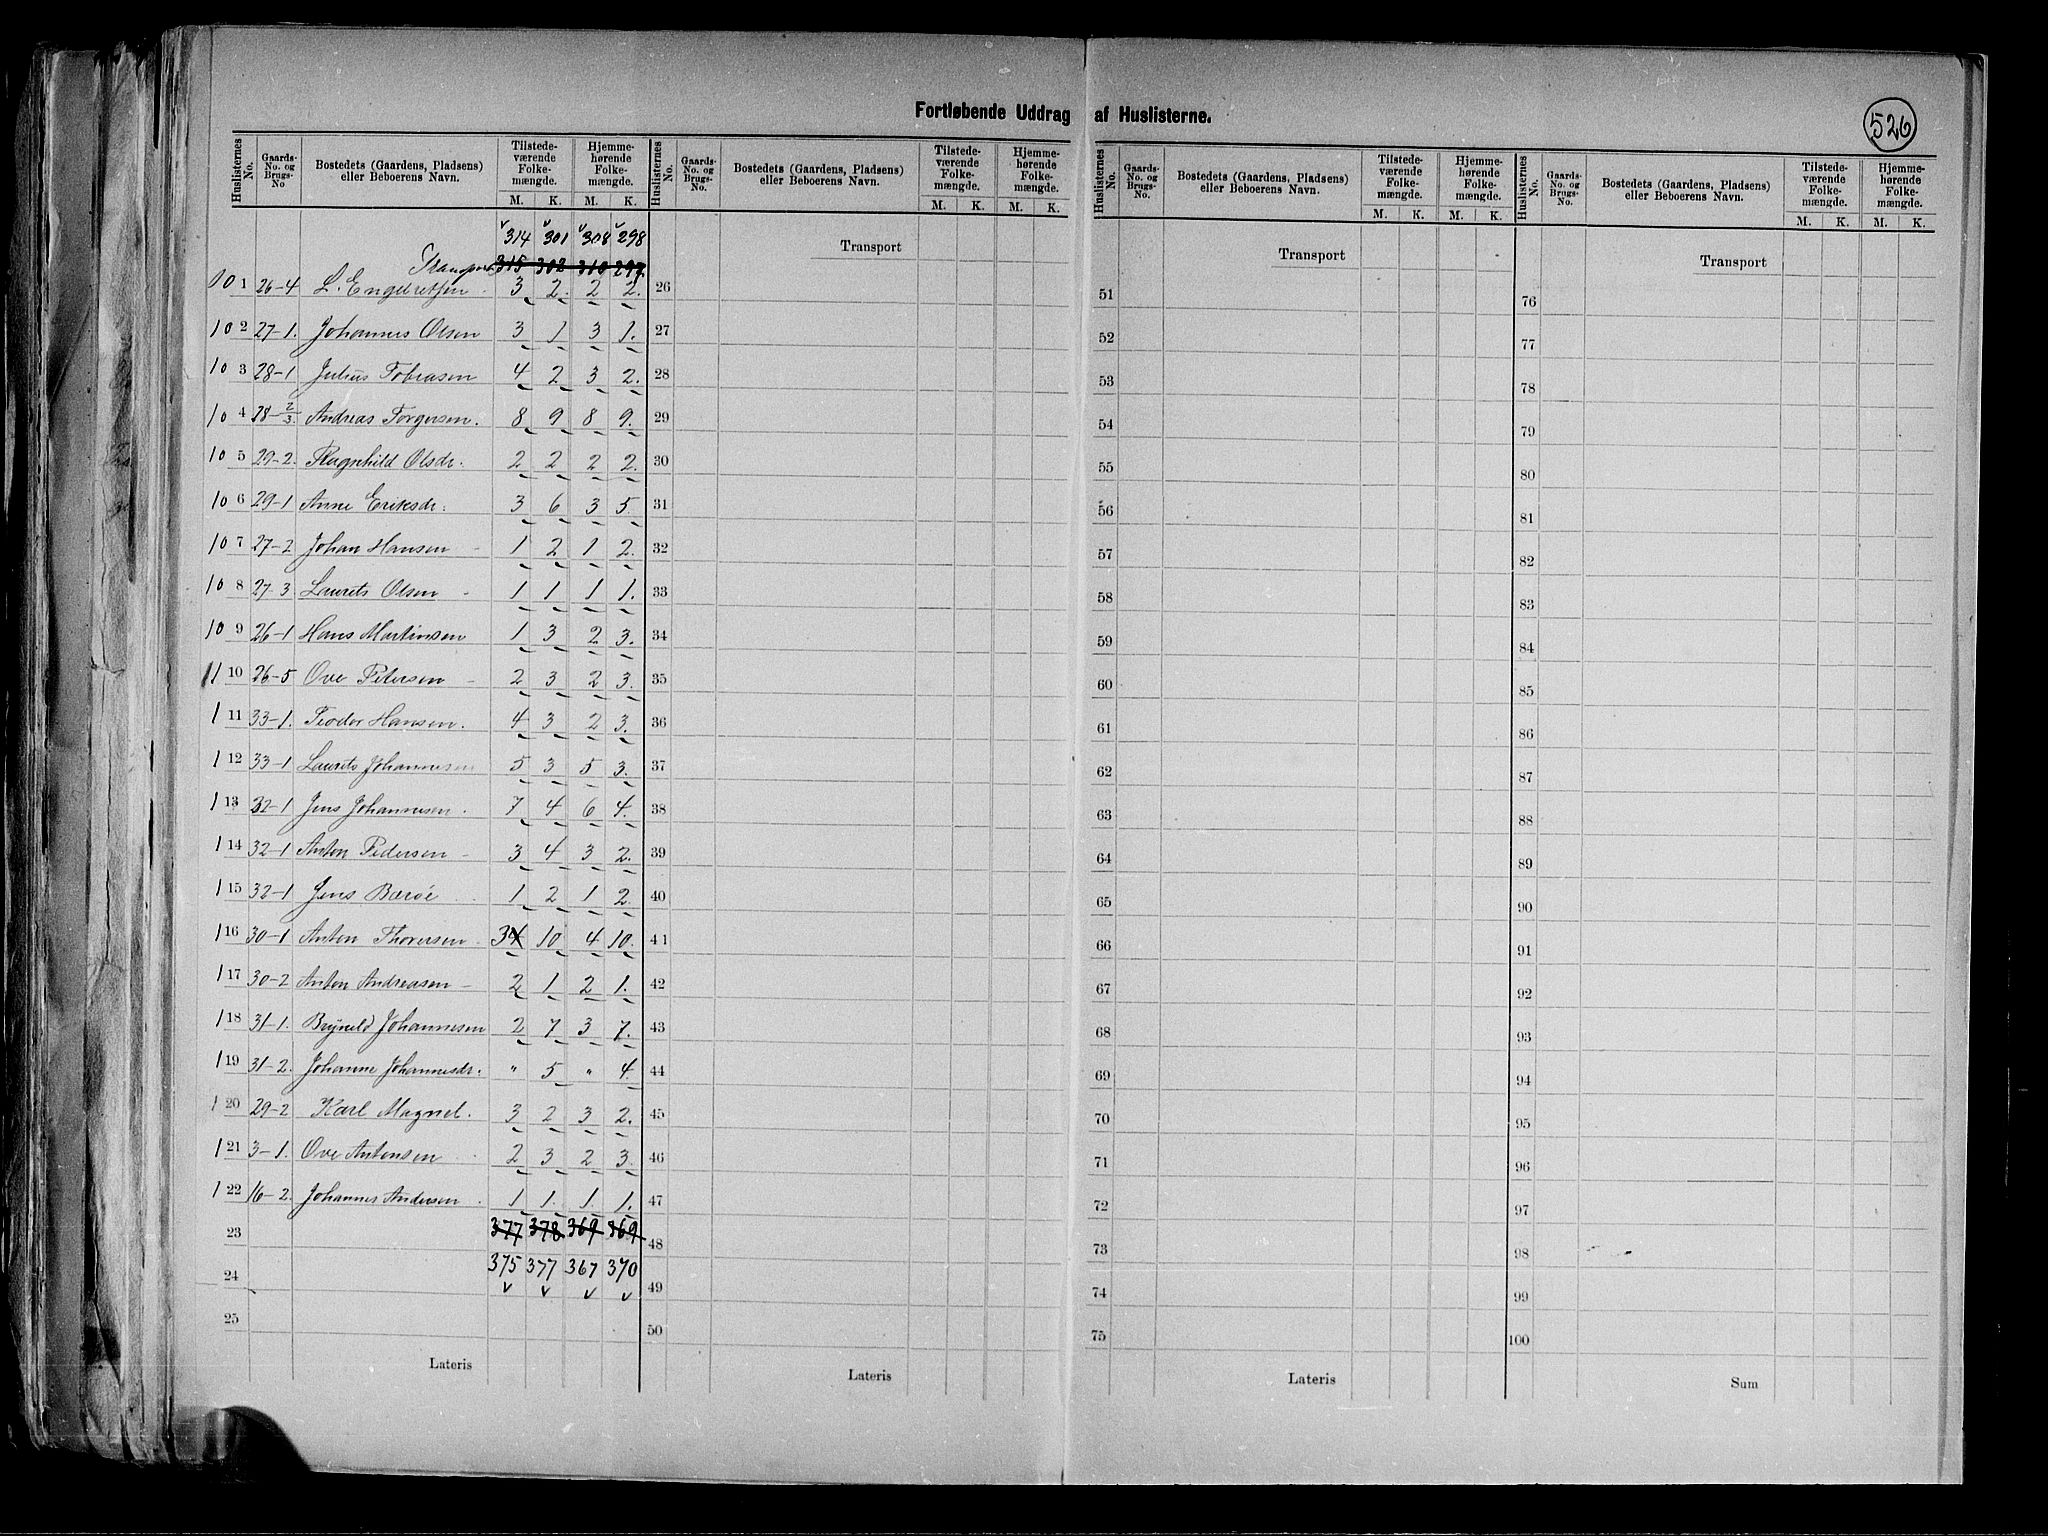 Fortløbende Uddrag af Huslisterne.
526
Huslisternes No. Gaards-No. og Brugs-No Bostedets (Gaardens, Pladsens) eller Beboerens Navn. Tilstedeværende Folkemængde. M. K. Hjemmehørende Folkemængde. M. K.
314 301 308 298
Transport 315 302 310 297.
101 26-4 L. Engebretsen 3 2 2 2.
102 27-1. Johannes Olsen 3 1 3 1.
103 28-1 Julius Tobiasen 4 2 3 2.
104 28-2/3. Andreas Torgersen. 8 9 8 9.
105 29-2. Ragnhild Olsdr. 2 2 2 2.
106 29-1 Anne Eriksdr. 3 6 3 5.
107 27-2 Johan Hansen 1 2 1 2.
108 27-3 Laurits Olsen 1 1 1 1.
109 26-1 Hans Martinsen 1 3 2 3.
110 26-5 Ove Petersen 2 3 2 3.
111 33-1. Teodor Hansen. 4 3 2 3.
112 33-1 Laurits Johannesen 5 3 5 3.
113 32-1 Jens Johannesen. 7 4 6 4.
114 32-1 Anton Pedersen 3 4 3 2.
115 32-1 Jens Barøe 1 2 1 2
116 30-1 Anton Thoresen. 34 10 4 10.
117 30-2 Anton Andreasen 2 1 2 1.
118 31-1. Johannesen 2 7 3 7.
119 31-2. Johanne Johannesdr. " 5 " 4.
120 29-2 Karl Magnel. 3 2 3 2.
121 3-1. Ove Antonsen 2 3 2 3.
122 16-2. Johannes Andersen 1 1. 1 1.
23 377 378 369 369
24 375 377 367 370
25
Lateris
Huslisternes No. Gaards-No. og Brugs-No. Bostedets (Gaardens, Pladsens) eller Beboerens Navn. Tilstedeværende Folkemængde. M. K. Hjemmehørende Folkemængde. M. K.
Transport
26
27
28
29
30
31
32
33
34
35
36
37
38
39
40
41
42
43
44
45
46
47
48
49
50
Lateris
Huslisternes No. Gaards-No. og Brugs-No. Bostedets (Gaardens, Pladsens) eller Beboerens Navn. Tilstedeværende Folkemængde. M. K. Hjemmehørende Folkemængde. M. K.
Transport
51
52
53
54
55
56
57
58
59
60
61
62
63
64
65
66
67
68
69
70
71
72
73
74
75
Lateris
Huslisternes No. Gaards-No. og Brugs-No. Bostedets (Gaardens, Pladsens) eller Beboerens Navn. Tilstedeværende Folkemængde. M. K. Hjemmehørende Folkemængde. M. K.
Transport
76
77
78
79
80
81
82
83
84
85
86
87
88
89
90
91
92
93
94
95
96
97
98
99
100
Sum